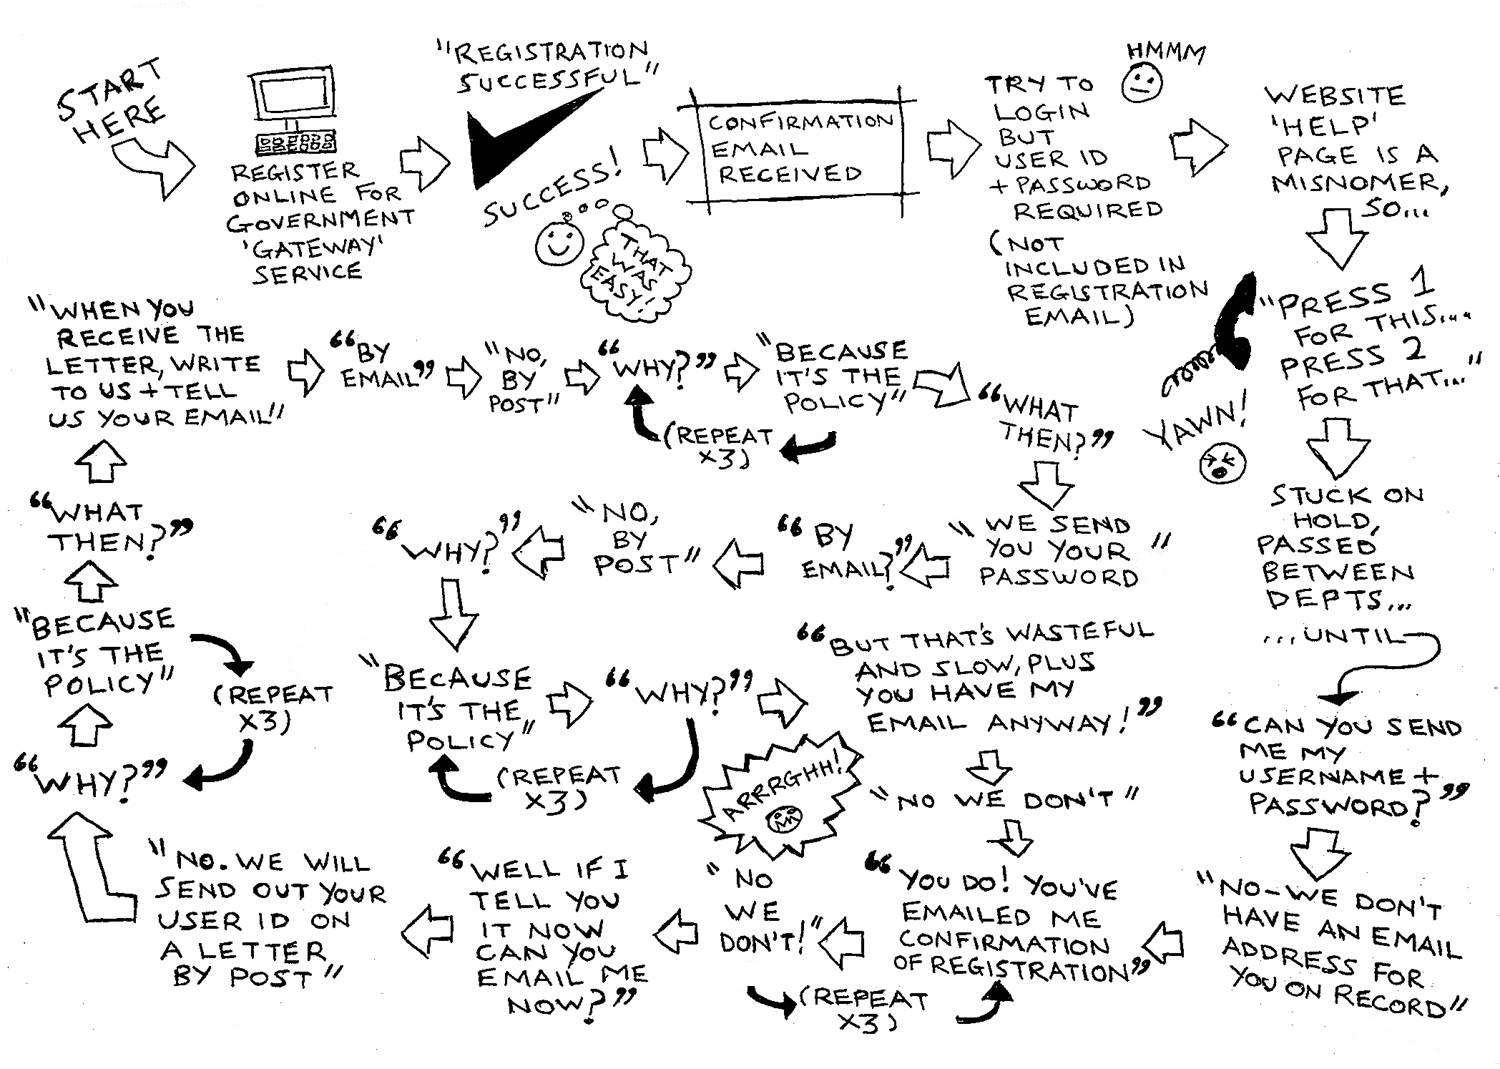 START
HERE
REGISTER
ONLINE FOR
GOVERNMENT
'GATEWAY'
SERVICE
"REGISTRATION
SUCCESSFUL"
SUCCESS!
THAT
WAS
EASY!
CONFIRMATION
EMAIL
RECEIVED
HMMM
TRY TO
LOGIN
BUT
USER ID
+ PASSWORD
REQUIRED
(NOT
INCLUDED IN
REGISTRATION
EMAIL)
WEBSITE
'HELP'
PAGE IS A
MISNOMER,
SO...
"PRESS 1
FOR THIS...
PRESS 2
FOR THAT..."
YAWN!
STUCK ON
HOLD,
PASSED
BETWEEN
DEPTS...
...UNTIL
"CAN YOU SEND
ME MY
USERNAME +
PASSWORD?"
"NO-WE DON'T
HAVE AN EMAIL
ADDRESS FOR
YOU ON RECORD"
"YOU DO! YOU'VE
EMAILED ME
CONFIRMATION
OF REGISTRATION"
"NO
WE
DON'T!"
(REPEAT
X3)
"WELL IF I
TELL YOU
IT NOW
CAN YOU
EMAIL ME
NOW?"
"NO. WE WILL
SEND OUT YOUR
USER ID ON
A LETTER
BY POST"
"WHY?"
"BECAUSE
IT'S THE
POLICY"
(REPEAT
X3)
"WHAT
THEN?"
"WHEN YOU
RECEIVE THE
LETTER, WRITE
TO US + TELL
US YOUR EMAIL"
"BY
EMAIL"
"NO,
BY
POST"
"WHY?"
"BECAUSE
IT'S THE
POLICY"
(REPEAT
X3)
"WHAT
THEN?"
"WE SEND
YOU YOUR "
PASSWORD
"BY
EMAIL?"
"NO,
BY
POST"
"WHY?"
"BECAUSE
IT'S THE
POLICY"
"WHY?"
(REPEAT
X3)
"BUT THAT'S WASTEFUL
AND SLOW, PLUS
YOU HAVE MY
EMAIL ANYWAY!"
"NO WE DON'T"
ARRRGHH!